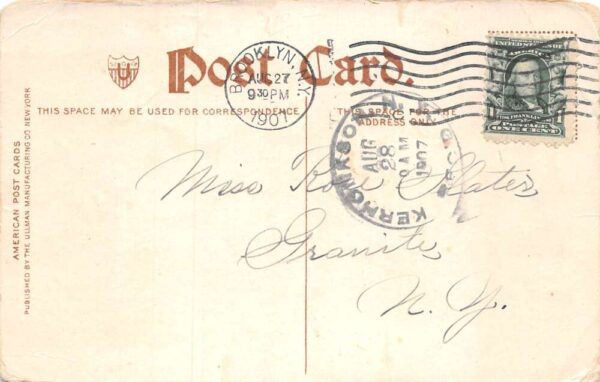 Post Card.
BROOKLYN, N.Y.
AUG 27
9 30 PM
1907
THIS SPACE MAY BE USED FOR CORRESPONDENCE
THIS SPACE FOR THE
ADDRESS ONLY
KERHONKSON
AUG
28
AM
1907
REC'D
UNITED STATES OF
FRANKLIN
ONE CENT
Miss Rose Slater
Granite
N. Y.
AMERICAN POST CARDS
PUBLISHED BY THE ULLMAN MANUFACTURING CO. NEW YORK
U